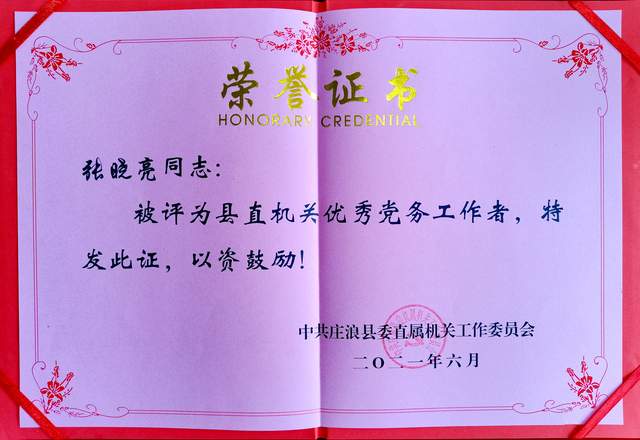 荣誉证书
HONORARY CREDENTIAL
张晓亮同志：
被评为县直机关优秀党务工作者，特
发此证，以资鼓励！
中共庄浪县委直属机关工作委员会
二〇二一年六月